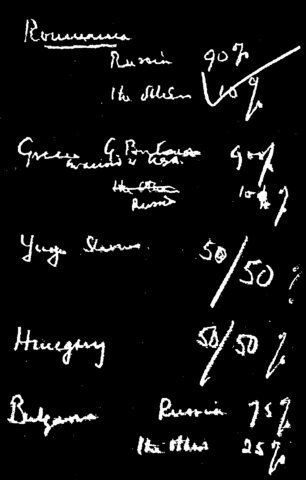 Roumania
Russia 90%
The others 10%
Greece G. Britain 90%
in accord with USA
The others
Russia 10%
Yugoslavia 50/50%
Hungary 50/50%
Bulgaria Russia 75%
The others 25%